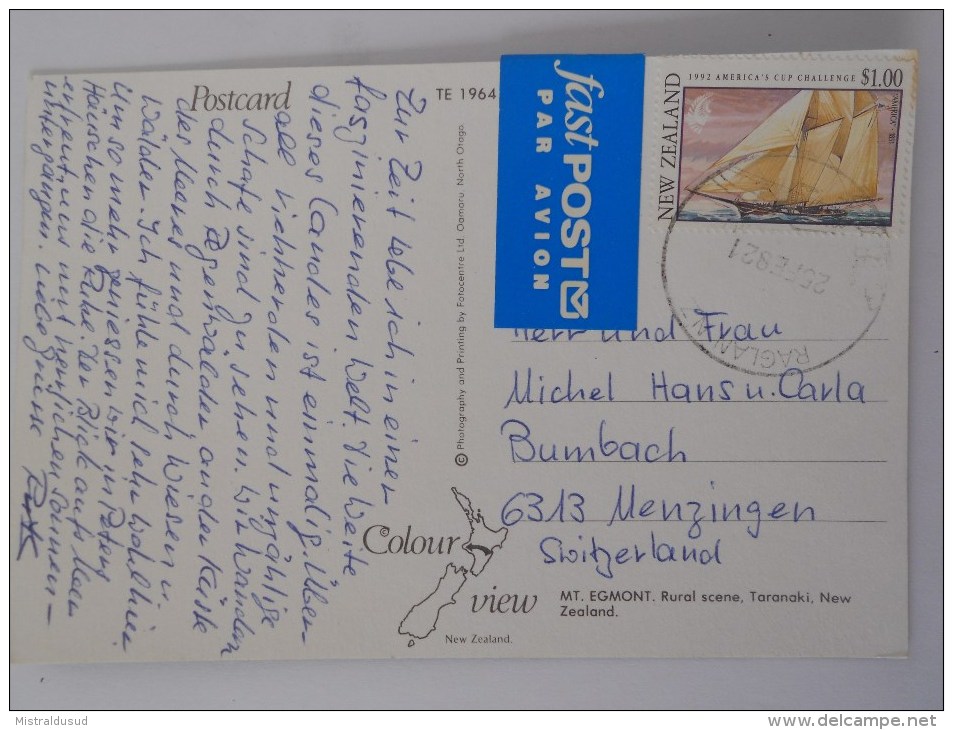 Postcard
TE 1964
fast POST
PAR AVION
1992 AMERICA'S CUP CHALLENGE $1.00
NEW ZEALAND
RAGLAN
Zur Zeit lebe ich in einer
faszinierenden Welt. Die Weite
dieses Landes ist einmalig. Über-
all richtenden und unzählige
Schafe sind zu sehen. Wir wandern
durch Regenwälder, an der Küste
des Meeres und durch Wiesen u.
Wälder. Ich fühle mich sehr wohl hier.
Um so mehr geniessen wir in
Häuschen die Ruhe. Der Blick aufs Meer
erfreut uns mit herrlichen Sonnen-
untergängen. Liebe Grüsse
© Photography and Printing by Fotocentre Ltd. Oamaru. North Otago.
Herr und Frau
Michel Hans u. Carla
Bumbach
6313 Menzingen
Switzerland
Colour
view
New Zealand.
MT. EGMONT. Rural scene, Taranaki, New
Zealand.
Mistraldusud
delcampe.net